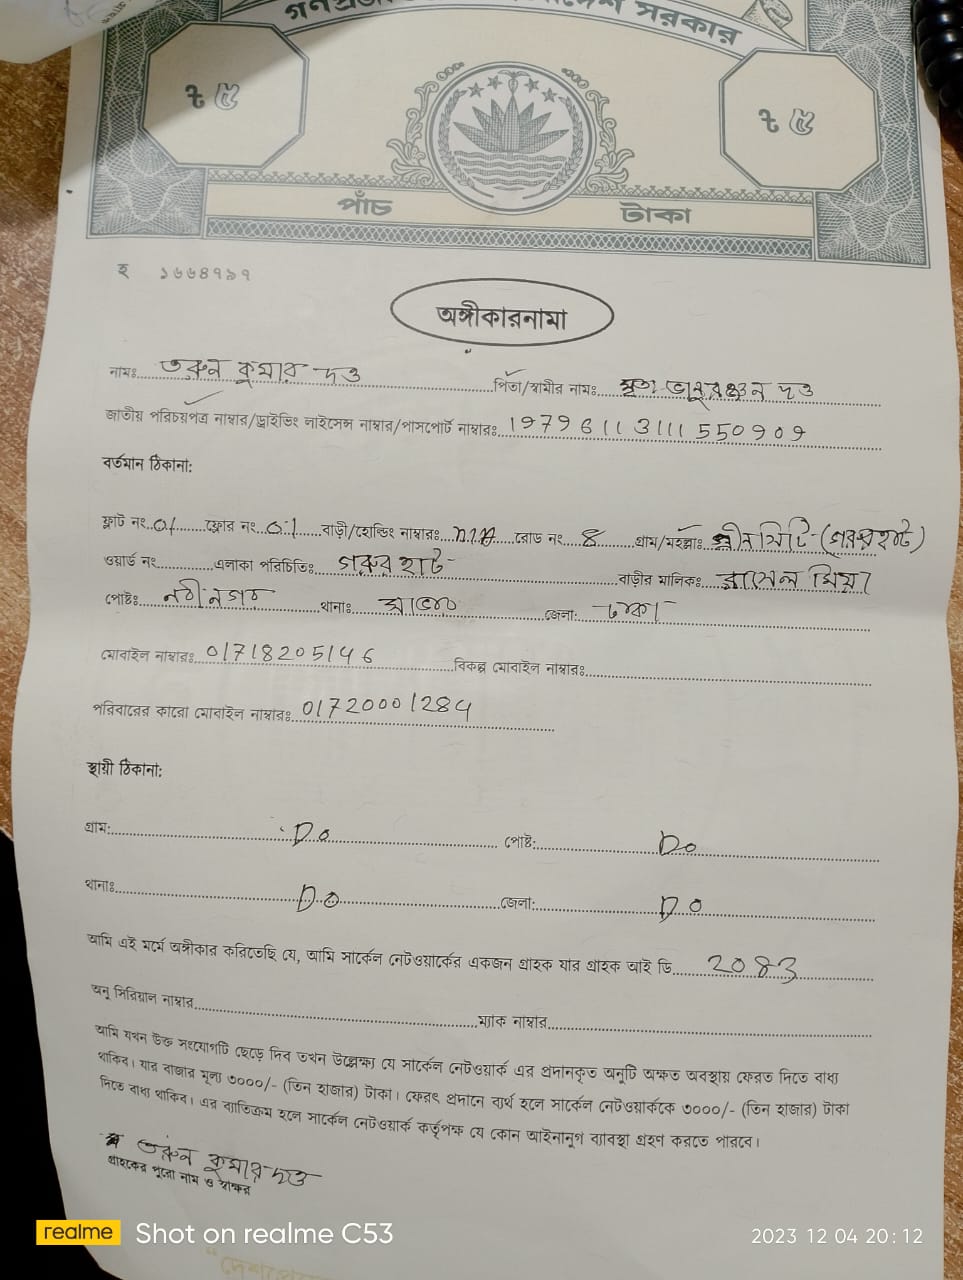 সরকার
৳ ৫ ৳ ৫
পাঁচ টাকা
হ ১৬৬৪৭৯৭
অঙ্গীকারনামা
নামঃ তরুন কুমার দত্ত পিতা/স্বামীর নামঃ মৃত ভানুরঞ্জন দত্ত
জাতীয় পরিচয়পত্র নাম্বার/ড্রাইভিং লাইসেন্স নাম্বার/পাসপোর্ট নাম্বারঃ 19796113111550909
বর্তমান ঠিকানা:
ফ্লাট নং 01 ফ্লোর নং 01 বাড়ী/হোল্ডিং নাম্বারঃ N/A রোড নং ৪ গ্রাম/মহল্লাঃ গ্রীন সিটি (গরুর হাট)
ওয়ার্ড নং এলাকা পরিচিতিঃ গরুর হাট বাড়ীর মালিকঃ রাসেল মিয়া
পোষ্টঃ নবীনগর থানাঃ সাভার জেলা: ঢাকা
মোবাইল নাম্বারঃ 01718205146 বিকল্প মোবাইল নাম্বারঃ
পরিবারের কারো মোবাইল নাম্বারঃ 01720001284
স্থায়ী ঠিকানা:
গ্রাম: Do পোষ্ট: Do
থানাঃ Do জেলা: Do
আমি এই মর্মে অঙ্গীকার করিতেছি যে, আমি সার্কেল নেটওয়ার্কের একজন গ্রাহক যার গ্রাহক আই ডি 2083
অনু সিরিয়াল নাম্বার ম্যাক নাম্বার
আমি যখন উক্ত সংযোগটি ছেড়ে দিব তখন উল্লেক্ষ্য যে সার্কেল নেটওয়ার্ক এর প্রদানকৃত অনুটি অক্ষত অবস্থায় ফেরত দিতে বাধ্য
থাকিব। যার বাজার মূল্য ৩০০০/- (তিন হাজার) টাকা। ফেরৎ প্রদানে ব্যর্থ হলে সার্কেল নেটওয়ার্ককে ৩০০০/- (তিন হাজার) টাকা
দিতে বাধ্য থাকিব। এর ব্যাতিক্রম হলে সার্কেল নেটওয়ার্ক কর্তৃপক্ষ যে কোন আইনানুগ ব্যাবস্থা গ্রহণ করতে পারবে।
তরুন কুমার দত্ত
গ্রাহকের পুরো নাম ও স্বাক্ষর
realme Shot on realme C53 2023 12 04 20:12